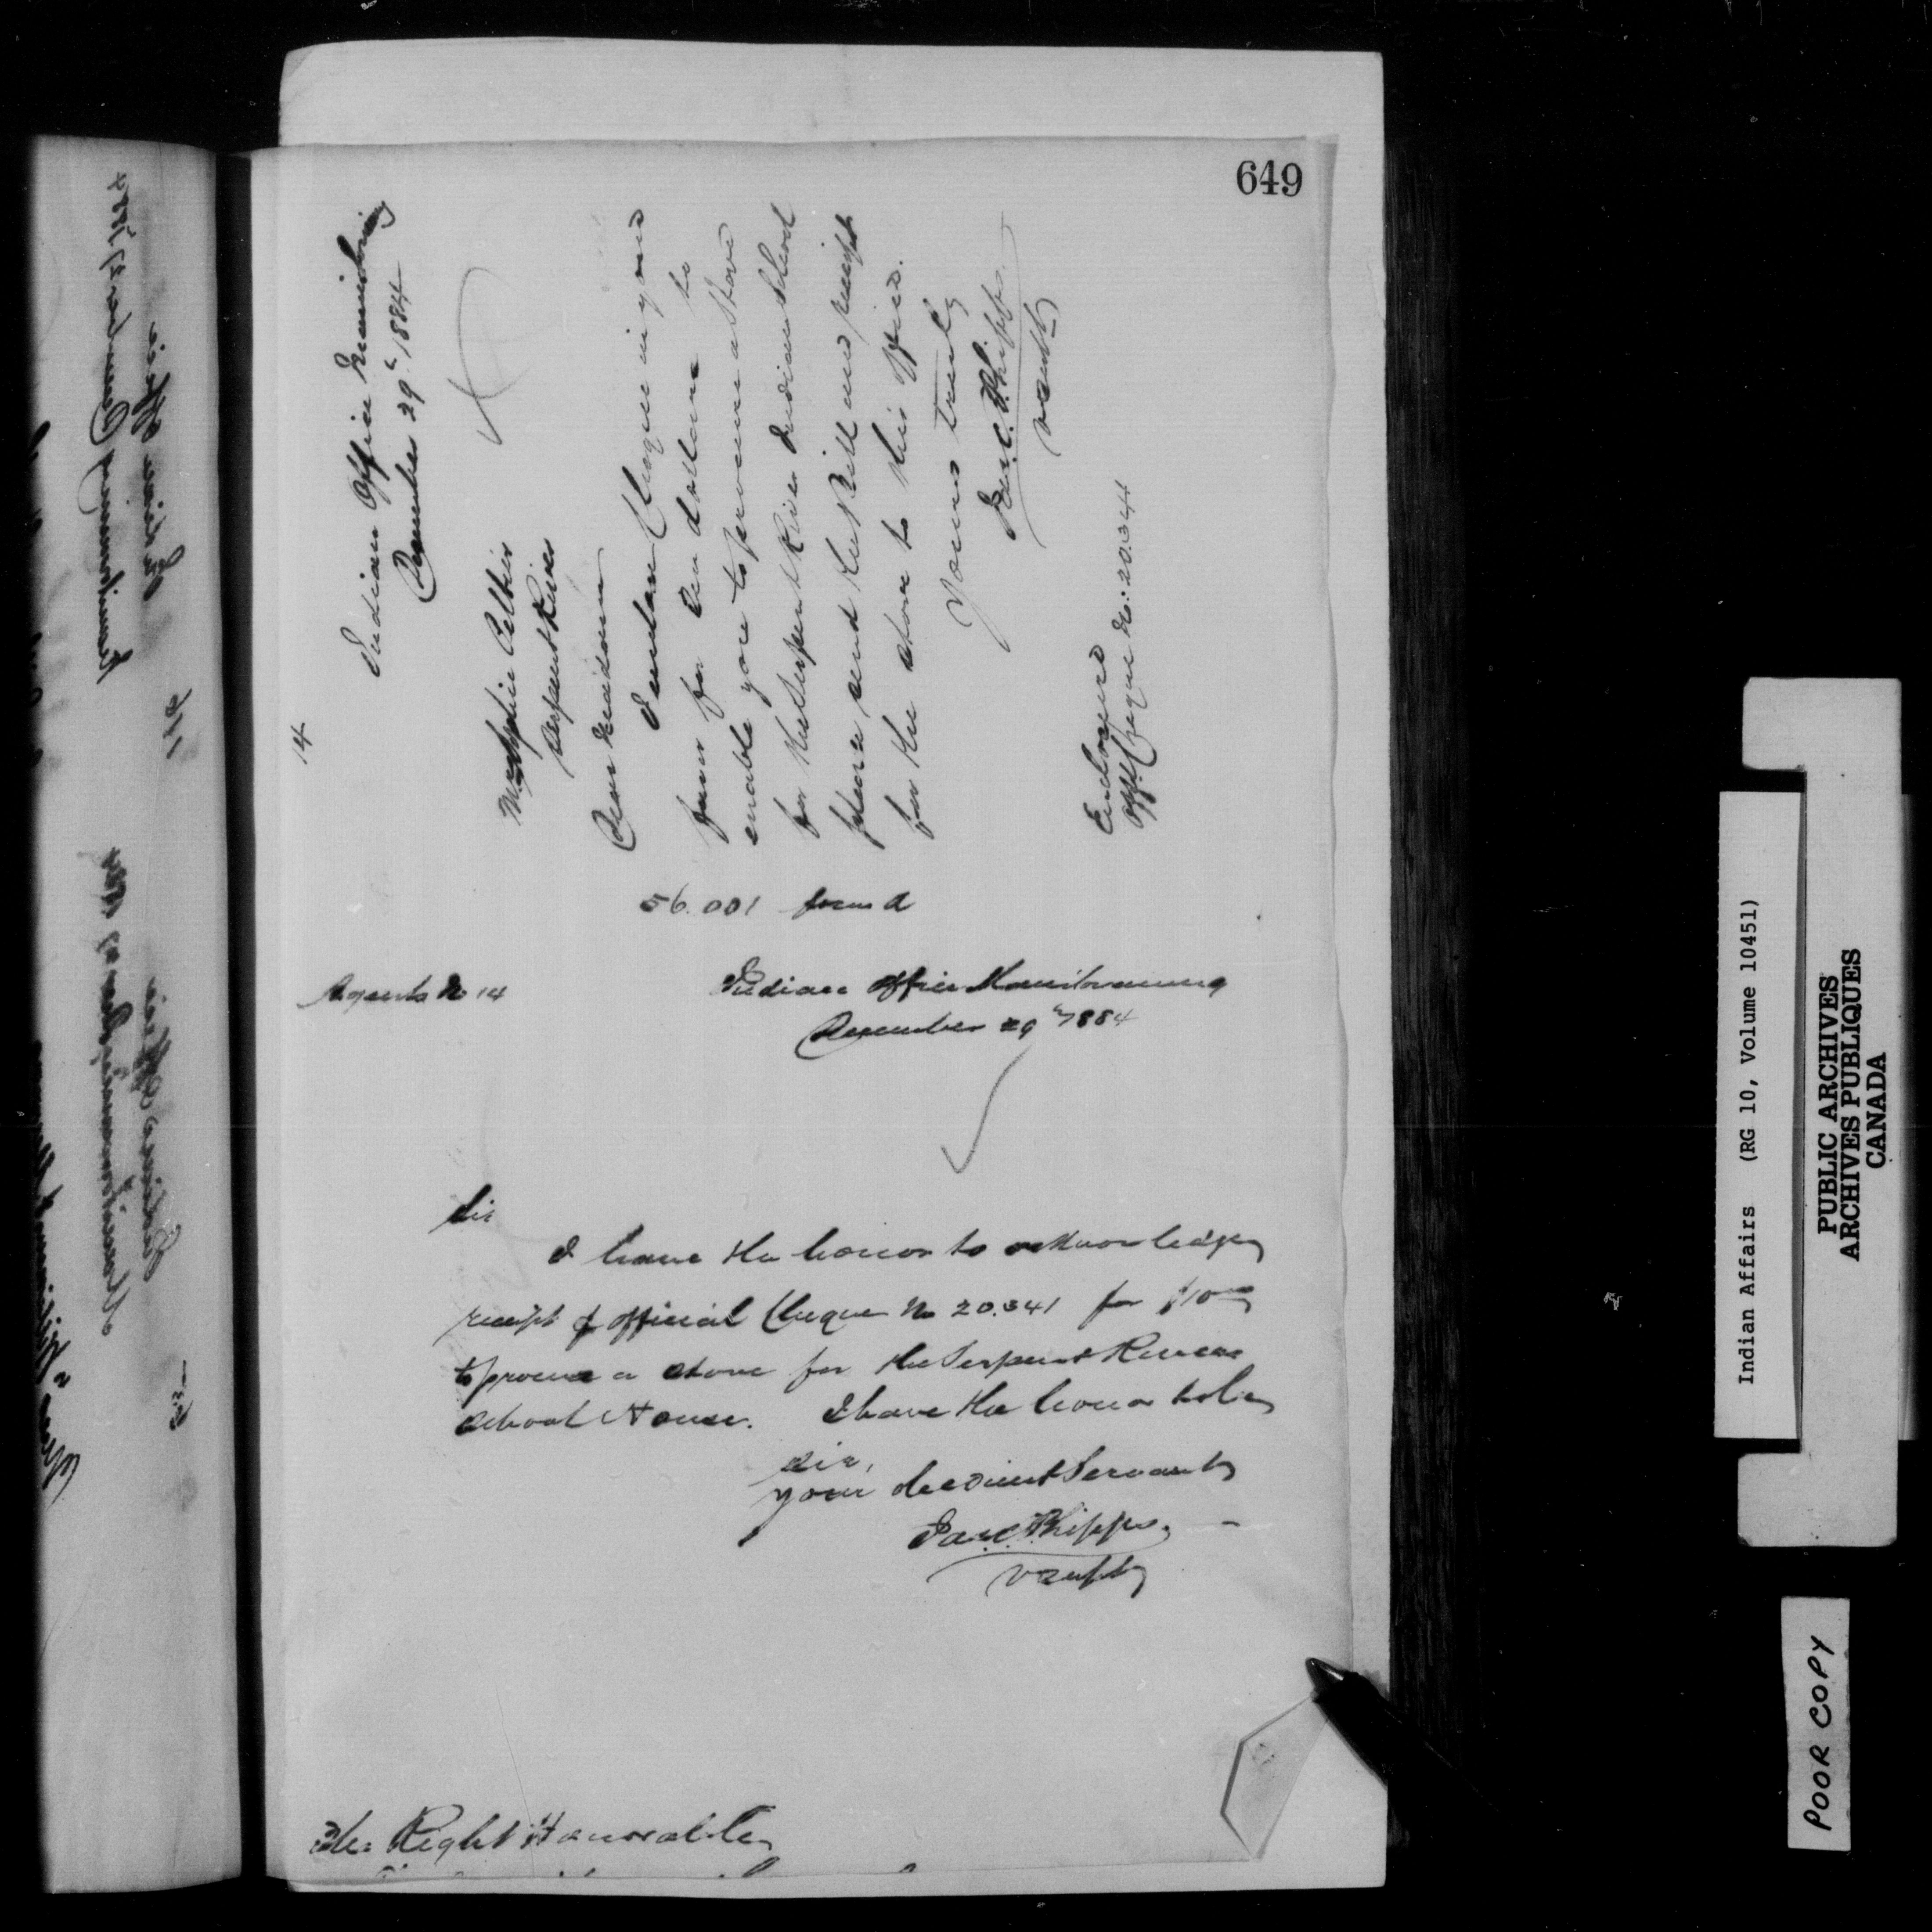 649
14
Indian Office Manitowaning
December 29th 1884
Sophie Peltier
Serpent River
Dear Madam
I enclose Cheque in your
favor for Ten dollars to
enable you to procure a stove
for the Serpent River Indian School
please send the Bill and receipt
for the stove to this Office.
Yours truly
Jas. C. Phipps
V. Supt
Enclosed
Off. Cheque No. 20.341
56.001 found
Agents No 14
Indian Office Manitowaning
December 29th 1884
Sir
I have the honor to acknowledge
receipt of official Cheque No 20.341 for $10
to procure a stove for the Serpent River
School House. I have the honor to be
Sir,
your obedient Servant
Jas. C. Phipps.
V Supt
The Right Honorable
Indian Affairs (RG 10, Volume 10451)
PUBLIC ARCHIVES
ARCHIVES PUBLIQUES
CANADA
POOR COPY